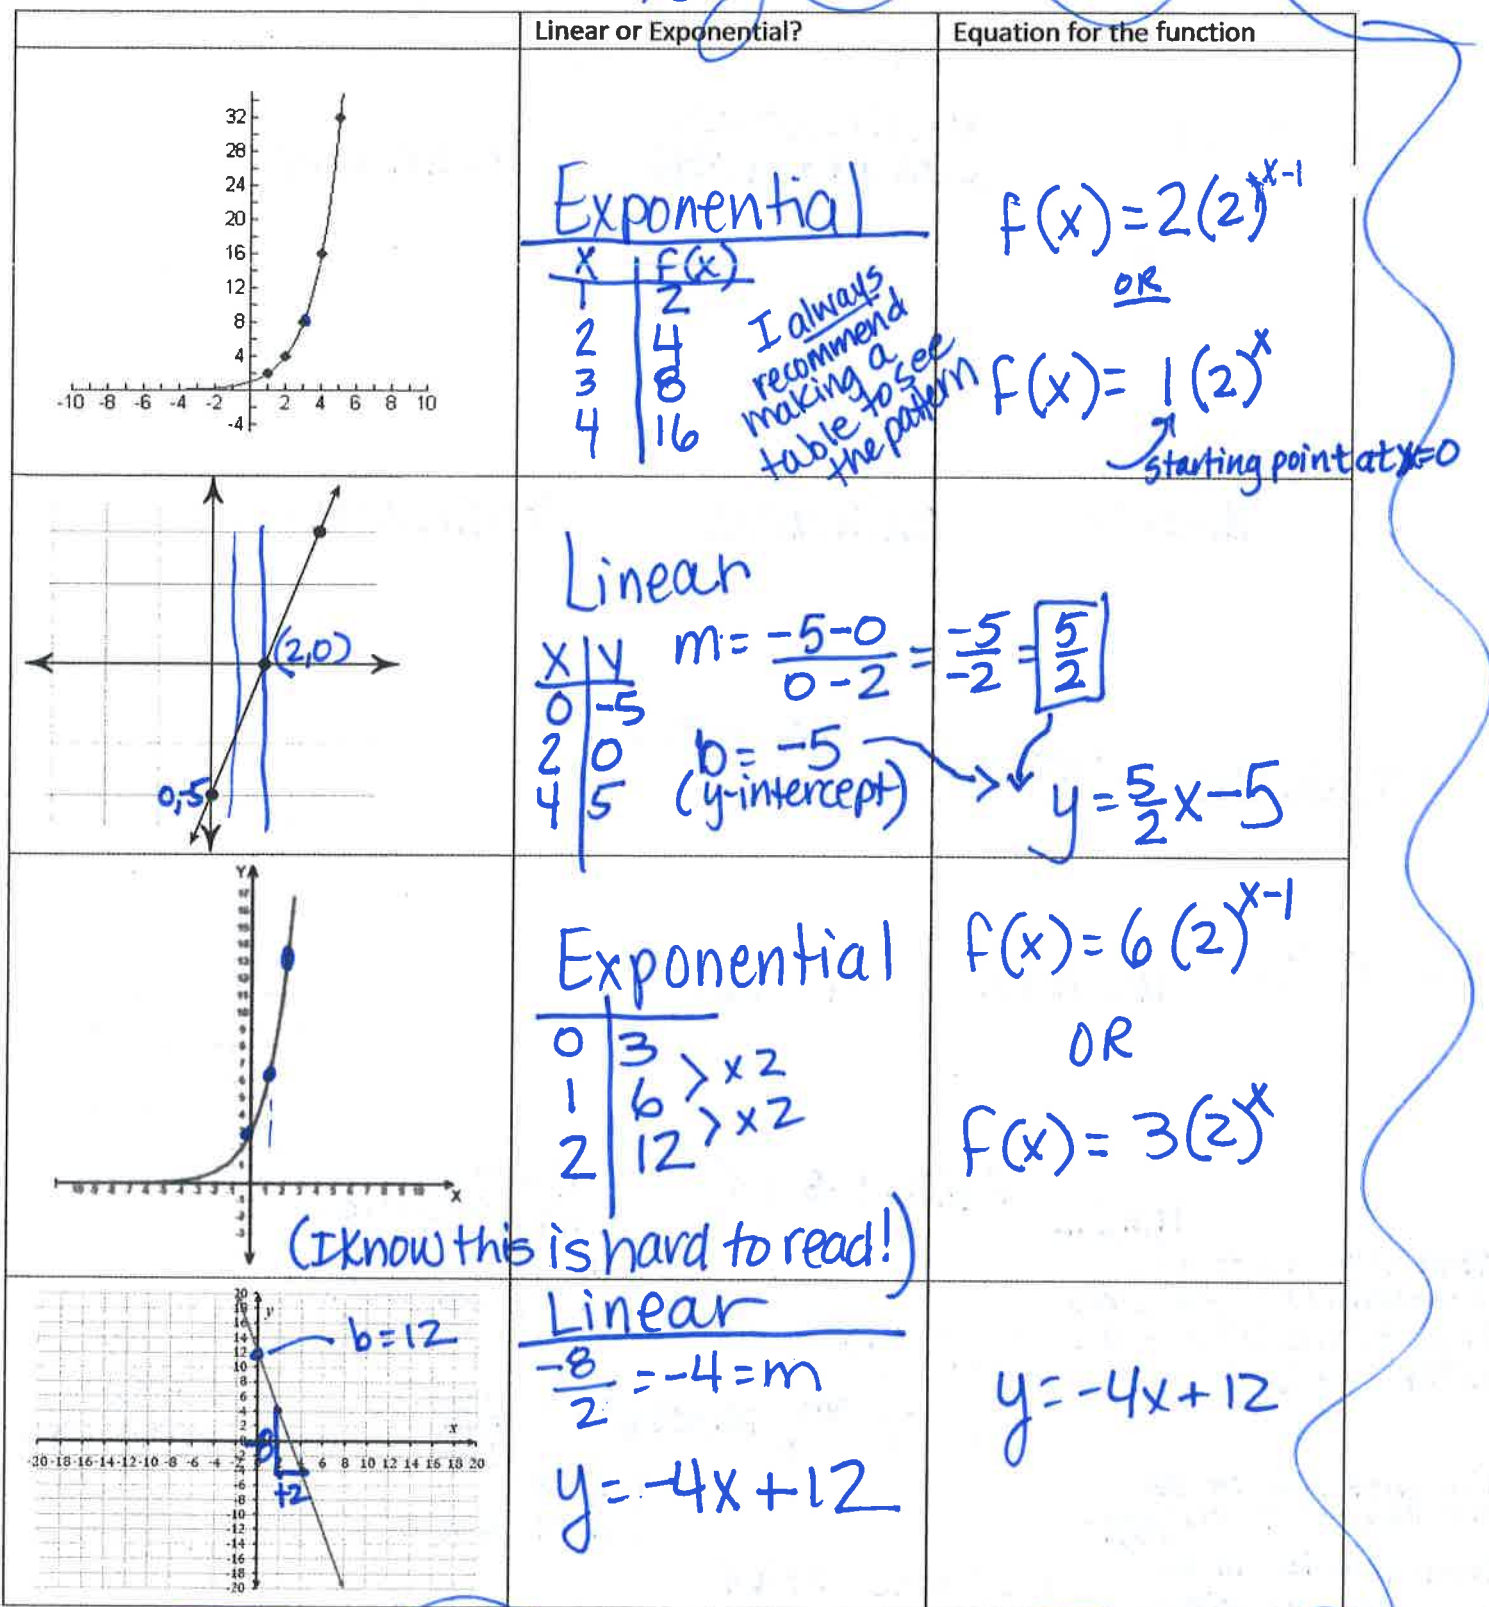 Linear or Exponential?
Equation for the function
32
28
24
20
16
12
8
4
-4
-10 -8 -6 -4 -2 2 4 6 8 10
Exponential
x f(x)
1 2
2 4
3 8
4 16
I always
recommend
making a
table to see
the pattern
f(x) = 2(2)^x-1
OR
f(x) = 1(2)^x
starting point at x=0
(2,0)
0,-5
Linear
x y
0 -5
2 0
4 5
m = -5-0 / 0-2 = -5 / -2 = 5 / 2
b = -5
(y-intercept)
y = 5/2 x - 5
Y
X
Exponential
0 3
1 6
2 12
> x2
> x2
f(x) = 6(2)^x-1
OR
f(x) = 3(2)^x
(I know this is hard to read!)
20
18
14
12
10
8
6
4
2
y
x
b=12
-8
+2
-20 -18 -16 -14 -12 -10 -8 -6 -4 6 8 10 12 14 16 18 20
-6
-8
-10
-12
-14
-16
-18
-20
Linear
-8/2 = -4 = m
y = -4x + 12
y = -4x + 12